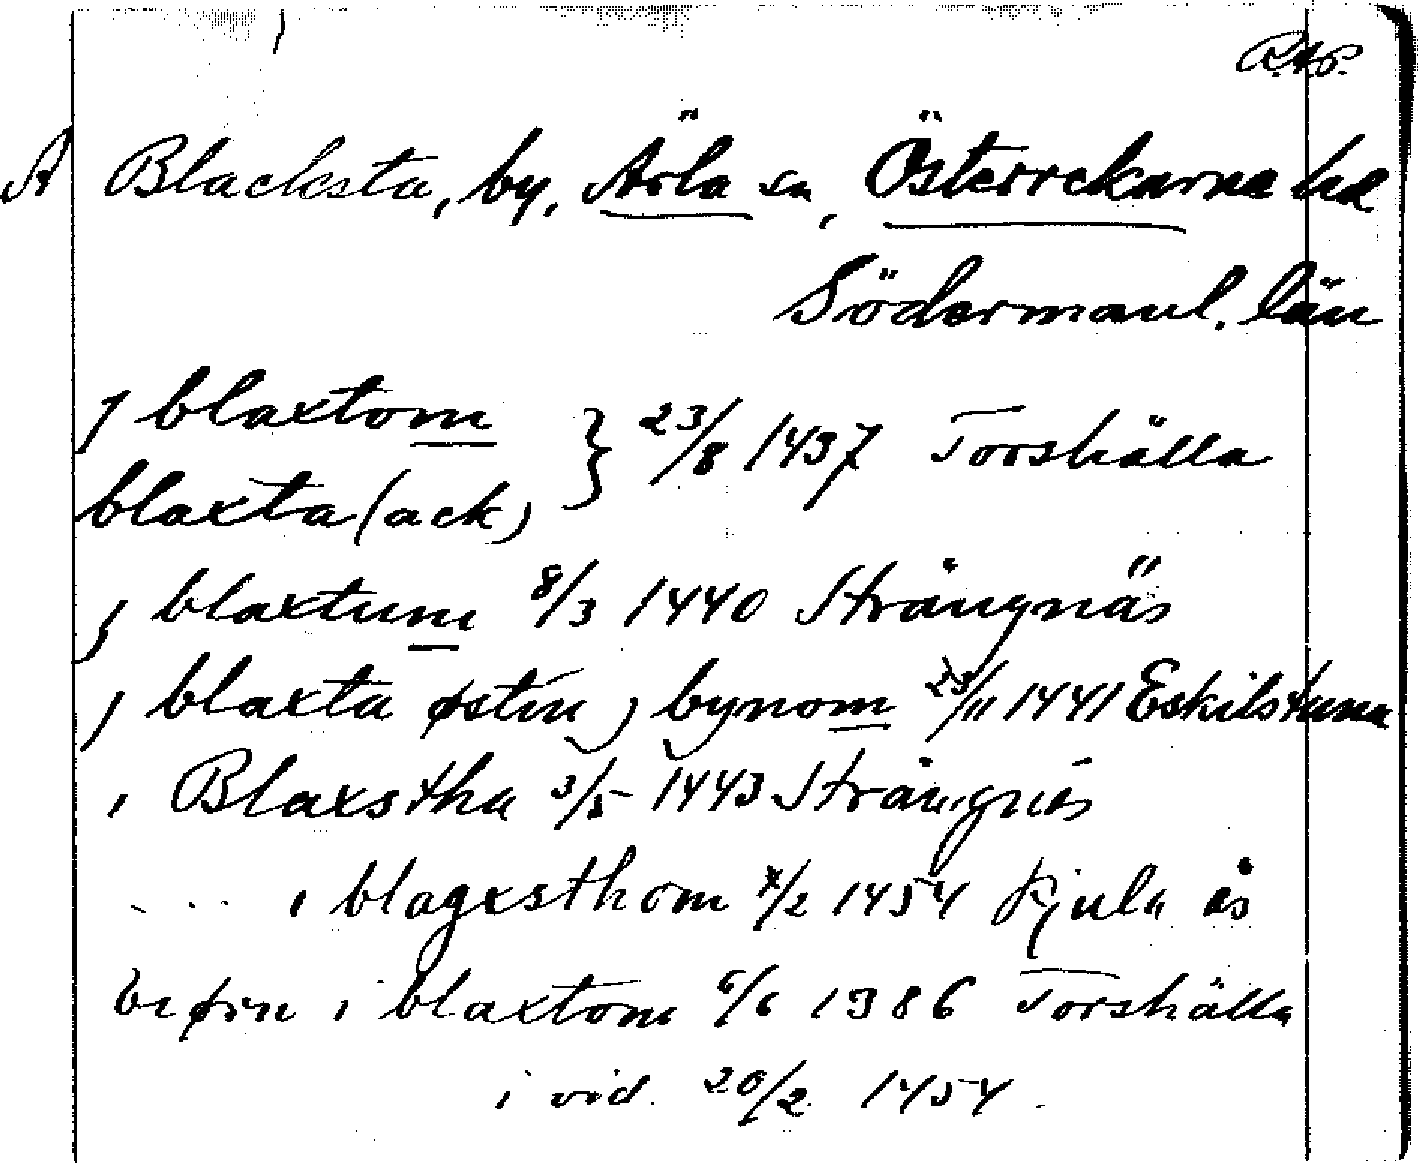 R.A.P.
A Blacksta, by, Ärla sn, Österrekarne hd
Södermanl. län
j blaxtom
blaxta (ack) } 23/8 1437 Torshälla
j blaxtum 8/3 1440 Strängnäs
j blaxta østin j bynom 23/11 1441 Eskilstuna
i Blaxstha 3/5 1443 Strängnäs
... i blagxsthom /2 1454 Kjula ås
biørn i blaxtom 6/6 1386 Torshälla
i vid. 20/2 1454.